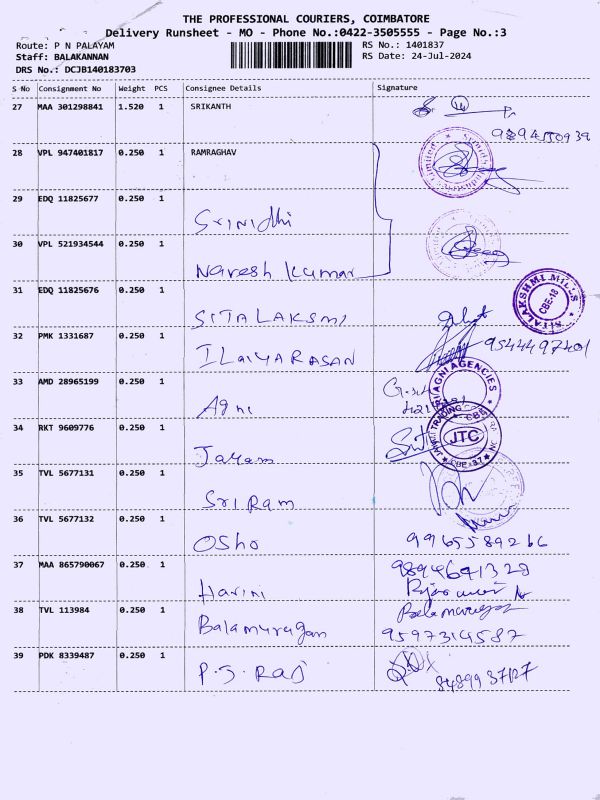 THE PROFESSIONAL COURIERS, COIMBATORE
Delivery Runsheet - MO - Phone No.:0422-3505555 - Page No.:3
Route: P N PALAYAM
RS No.: 1401837
Staff: BALAKANNAN
RS Date: 24-Jul-2024
DRS No.: DCJB140183703
S No Consignment No Weight PCS Consignee Details Signature
27 MAA 301298841 1.520 1 SRIKANTH
28 VPL 947401817 0.250 1 RAMRAGHAV
29 EDQ 11825677 0.250 1
Srinidhi
30 VPL 521934544 0.250 1
Naresh Kumar
31 EDQ 11825676 0.250 1
SITALAKSMI
SITALAKSHMI MILLS
CBE-18
32 PMK 1331687 0.250 1
ILAIYARASAN
9544497401
33 AMD 28965199 0.250 1
Agni
AGNI AGENCIES
CBE
34 RKT 9609776 0.250 1
Jayam
TRADING
JTC
CBE-37
35 TVL 5677131 0.250 1
Sri Ram
36 TVL 5677132 0.250 1
Osho
9965589266
37 MAA 865790067 0.250 1
Harini
9894691328
38 TVL 113984 0.250 1
Balamurugan
Balamurugan
9597314587
39 PDK 8339487 0.250 1
P.S. Raj